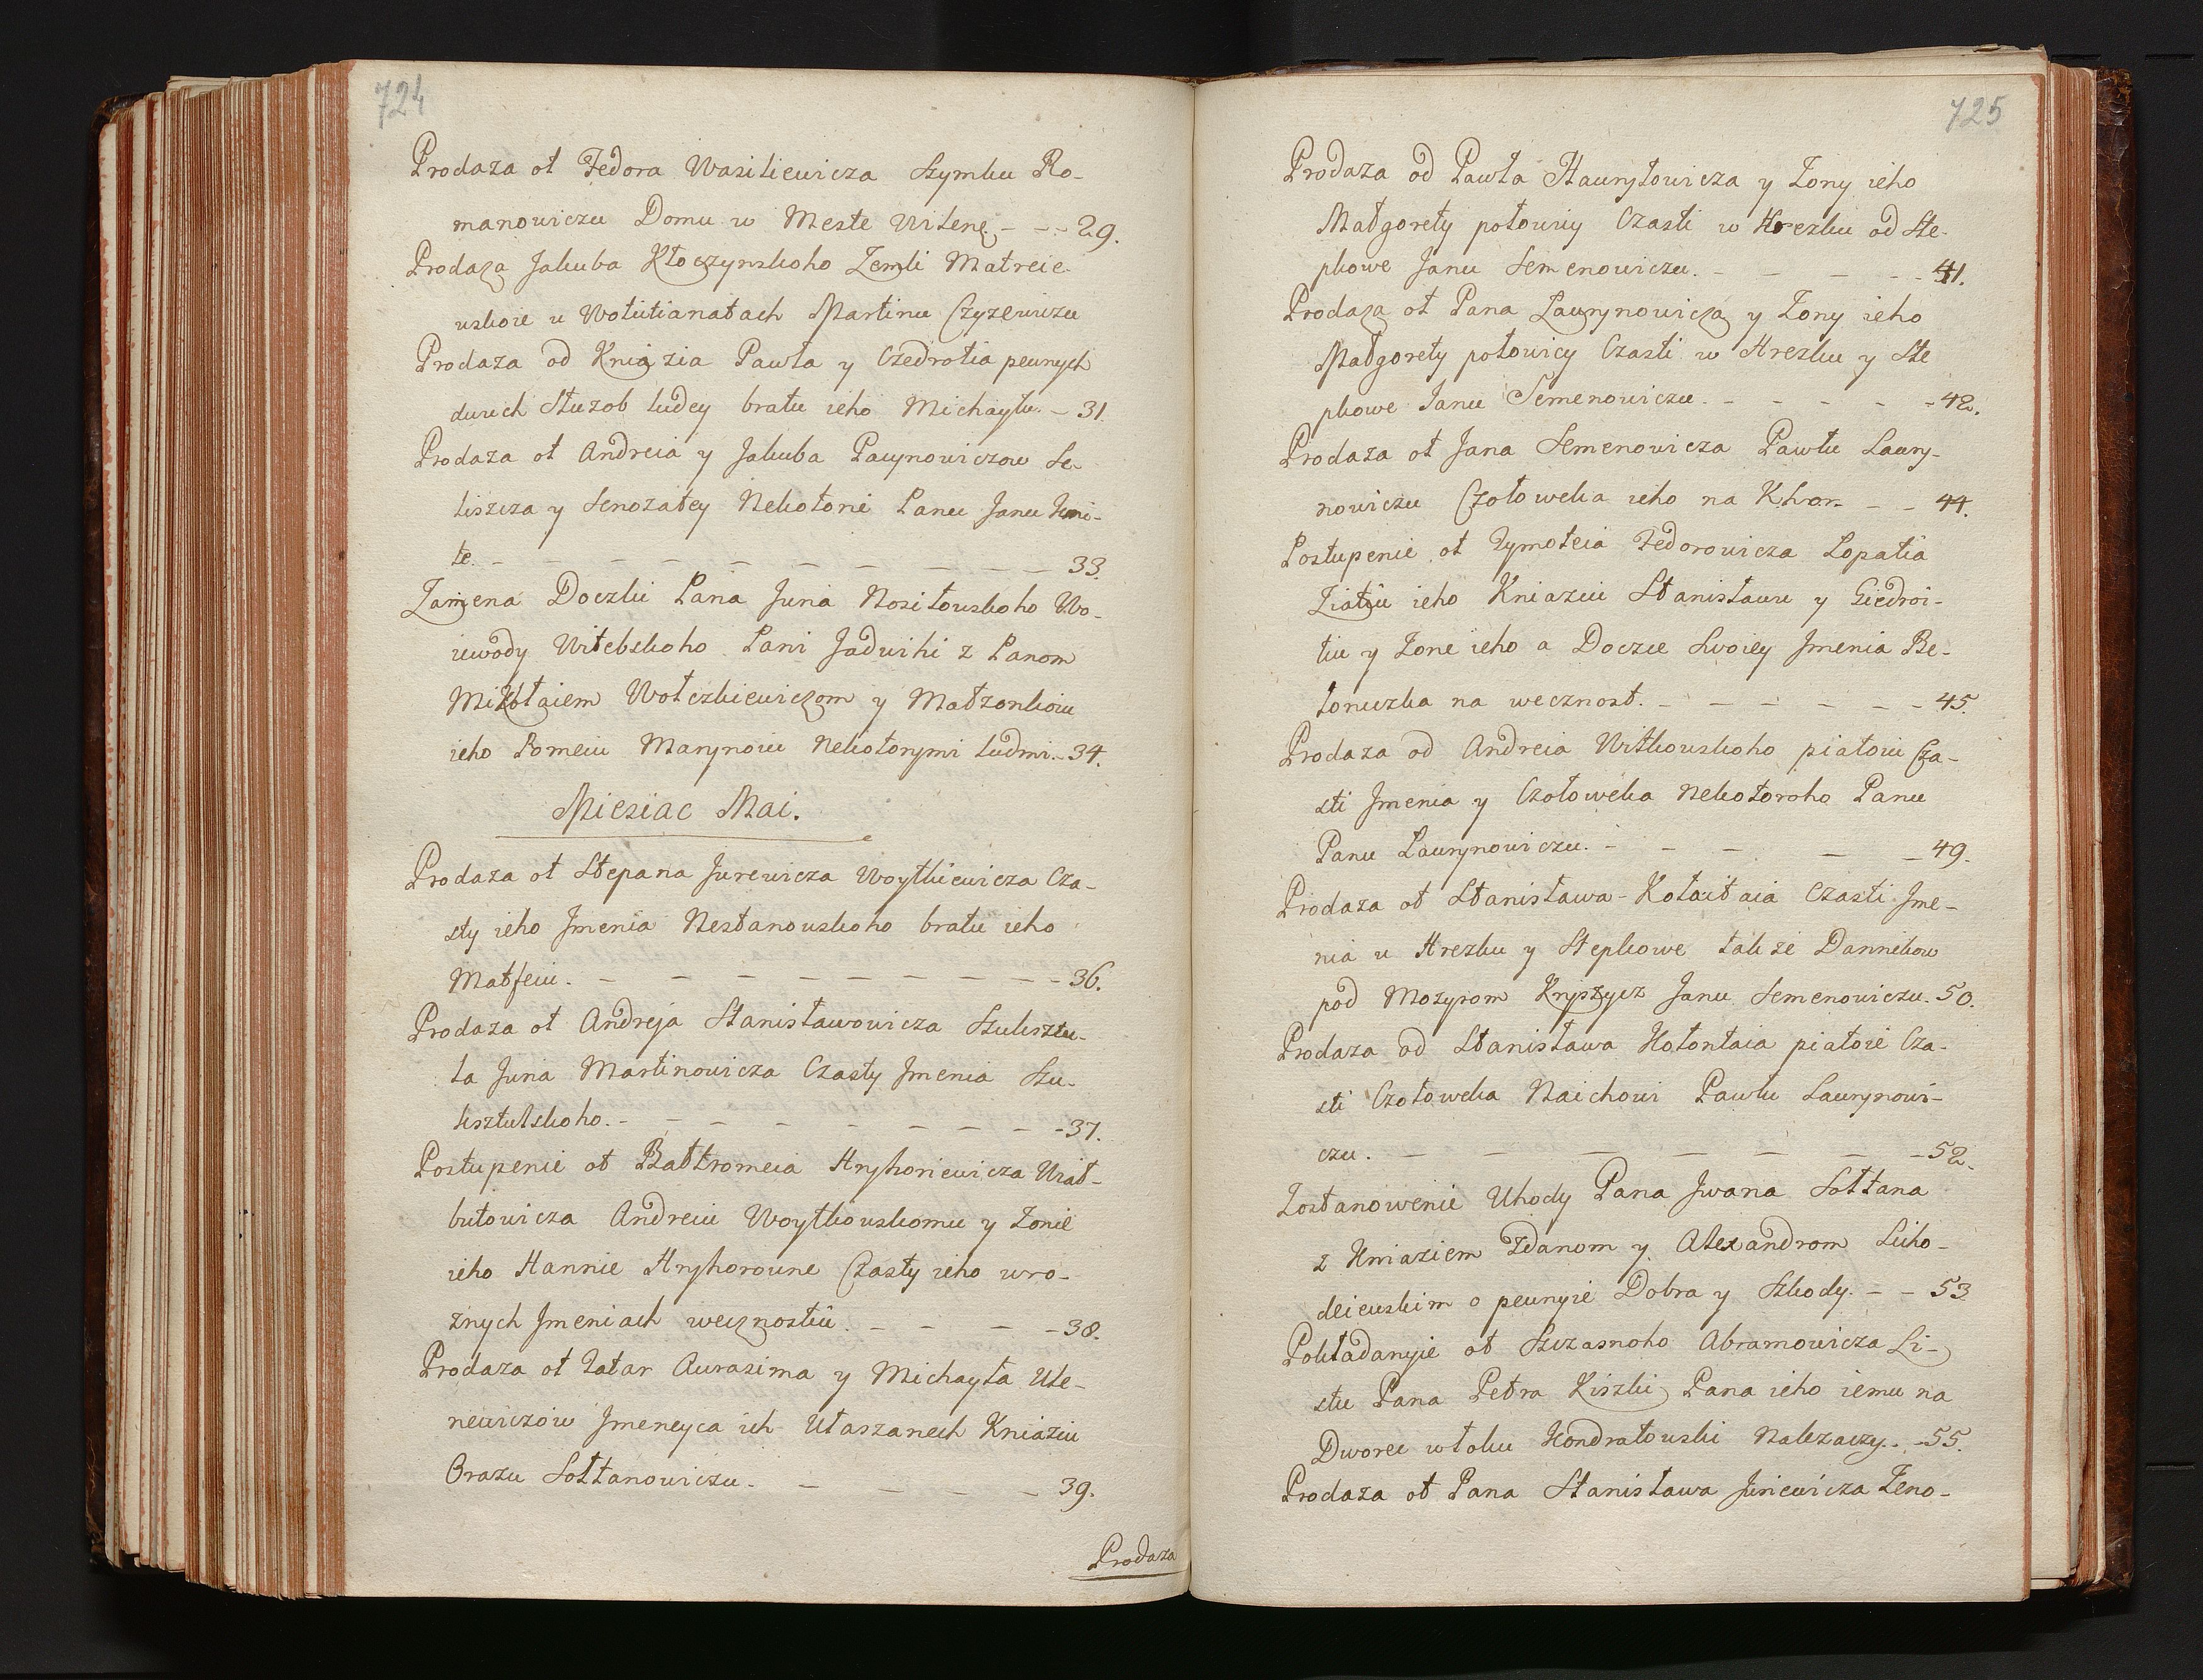 724
Prodaza ot Fedora Wasiliewicza Szymku Ro-
manowiczu Domu w Meste Wilene. - - - 29.
Prodaza Jakuba Kłoczynskoho Zemli Matreie-
wskoie u Wolutianatach Martinu Czyzewiczu
Prodaza od Kniazia Pawła y Czedrotia pewnych
dwuch Służob ludey bratu ieho Michayłu. - 31
Prodaza ot Andreia y Jakuba Pacynowiczow Se-
liszcza y Senozatey Nekotorie Panu Janu Kmi-
te. - - - - - - - - - 33.
Zamena Doczki Pana Juna Nosiłowskoho Wo-
iewody Witebskoho Pani Jadwihi z Panom
Mikołaiem Wołczkiewiczom y Małzonkoiu
ieho Pomeiu Marynoiu Nekotorymi ludmi. - 34.
Miesiac Mai.
Prodaza ot Stepana Jurewicza Woytkiewicza Cza-
sty ieho Jmenia Nestanowskoho bratu ieho
Matfeiu. - - - - - - - - 36.
Prodaza ot Andreja Stanisławowicza Szuksztu-
ła Juna Martinowicza Czasty Jmenia Szu-
ksztułskoho. - - - - - - - - 37.
Postupenie ot Bałtromeia Hryhoriewicza Wiał-
butowicza Andreiu Woytkowskomu y Zonie
ieho Hannie Hryhorowne Czasty ieho w ro-
znych Jmeniach wecznostiu. - - - - 38.
Prodaza ot Tatar Aurasima y Michayła Ule-
newiczow Jmeneyca ich Ułaszanech Kniaziu
Orazu Sołtanowiczu. - - - - - 39.
Prodaza
725
Prodaza od Pawła Hawryłowicza y Zony ieho
Małgorety połowicy Czasti w Hrezku od Ste-
pkowe Janu Semenowiczu. - - - - 41.
Prodaza ot Pana Laurynowicza y Zony ieho
Małgorety połowicy Czasti w Hrezku y Ste
pkowe Janu Semenowiczu. - - - - - 42.
Prodaza ot Jana Semenowicza Pawłu Laury-
nowiczu Czołoweka ieho na Khor. - - 44.
Postupenie ot Tymoteia Fedorowicza Lopatia
Ziatiu ieho Kniaziu Stanisławu y Giedroi-
tiu y Zone ieho a Doczce Swoiey Jmenia Be-
łonuzka na wecznost. - - - - - - 45.
Prodaza od Andreia Witkowskoho piatoiu Cza-
sti Jmenia y Czołoweka Nekotoroho Panu
Panu Laurynowiczu. - - - - - 49.
Prodaza ot Stanisława-Kołałtaia Czasti Jme-
nia u Hrezku y Stepkowe także Dannikow
pod Mozyrom Kryszycz Janu Semenowiczu. 50.
Prodaza od Stanisława Kołontaia piatoie Cza-
sti Czołoweka Naichowi Pawłu Laurynowi-
czu. - - - - - - - - 52.
Zostanowenie Uhody Pana Jwana Sołtana
z Kniaziem Zdanom y Alexandrom Liho-
deiewskim o pewnyie Dobra y Szkody. - - 53
Pokładanyie ot Szczasnoho Abramowicza Li-
stu Pana Petra Kiszki Pana ieho iemu na
Dworec w toku Kondratowski Nalezaczy. - 55.
Prodaza ot Pana Stanisława Juriewicza Zeno-